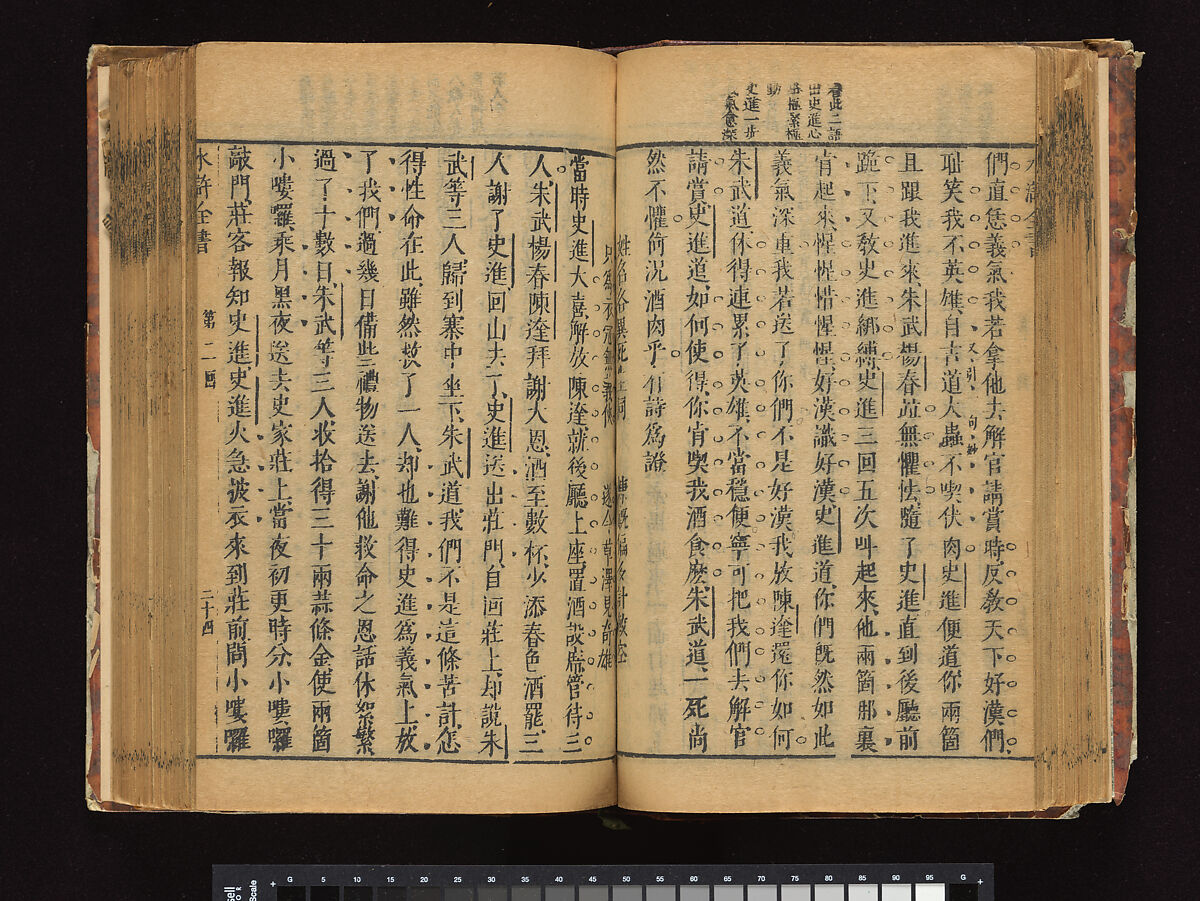 看此二語
出史進心
史進一步
們直恁義氣我若拿他去解官請賞時反教天下好漢們
恥笑我不英雄自古道大蟲不喫伏肉史進便道你兩箇
且跟我進來朱武楊春並無懼怯隨了史進直到後廳前
跪下又教史進綁縛史進三回五次叫起來他兩箇那裏
肯起來惺惺惜惺惺好漢識好漢史進道你們既然如此
義氣深重我若送了你們不是好漢我放陳達還你如何
朱武道休得連累了英雄不當穩便寧可把我們去解官
請賞史進道如何使得你肯喫我酒食麽朱武道一死尚
然不懼何況酒肉乎有詩爲證
姓名各異死生同 慷慨偏多計較空
只爲衣冠無義俠 遂令草澤見奇雄
當時史進大喜解放陳達就後廳上座置酒設席管待三
人朱武楊春陳達拜謝大恩酒至數杯少添春色酒罷三
人謝了史進回山去了史進送出莊門自回莊上却說朱
武等三人歸到寨中坐下朱武道我們不是這條苦計怎
得性命在此雖然救了一人却也難得史進爲義氣上放
了我們過幾日備些禮物送去謝他救命之恩話休絮繁
過了十數日朱武等三人收拾得三十兩蒜條金使兩箇
小嘍囉乘月黑夜送去史家莊上當夜初更時分小嘍囉
敲門莊客報知史進史進火急披衣來到莊前問小嘍囉
水滸全書 第二回 二十四